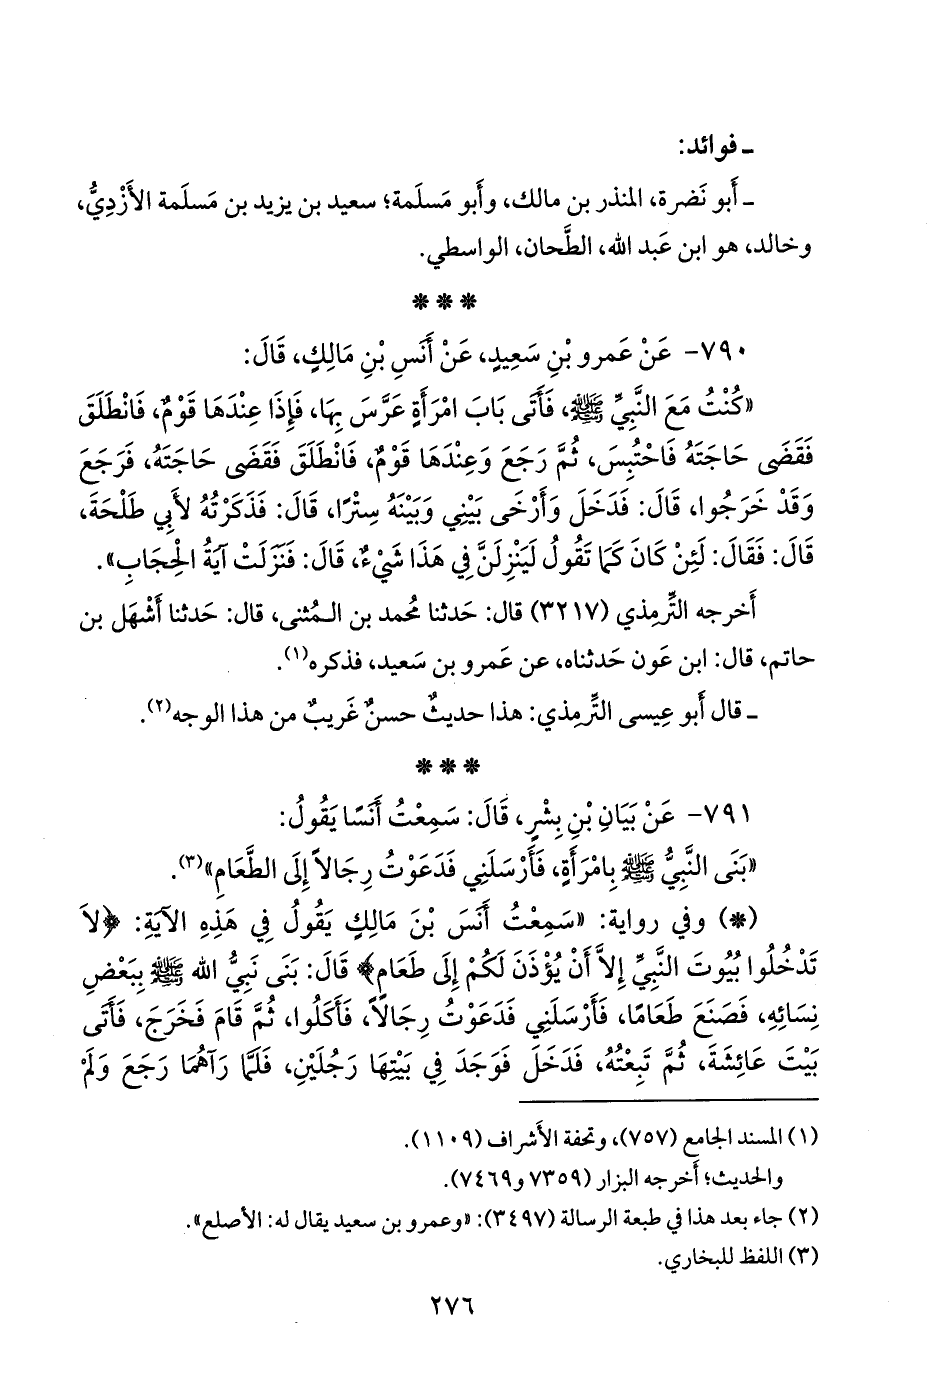 ـ فوائد:
ـ أَبو نَضرة، المنذر بن مالك، وأَبو مَسلَمة؛ سعيد بن يزيد بن مَسلَمة الأَزْدِيُّ،
وخالد، هو ابن عَبد الله، الطَّحان، الواسطي.
* * *
٧٩٠- عَنْ عَمرِو بْنِ سَعِيدٍ، عَنْ أَنَسِ بْنِ مَالِكٍ، قَالَ:
«كُنْتُ مَعَ النَّبِيِّ ﷺ، فَأَتَى بَابَ امْرَأَةٍ عَرَّسَ بِهَا، فَإِذَا عِنْدَهَا قَوْمٌ، فَانْطَلَقَ
فَقَضَى حَاجَتَهُ فَاحْتُبِسَ، ثُمَّ رَجَعَ وَعِنْدَهَا قَوْمٌ، فَانْطَلَقَ فَقَضَى حَاجَتَهُ، فَرَجَعَ
وَقَدْ خَرَجُوا، قَالَ: فَدَخَلَ وَأَرْخَى بَيْنِي وَبَيْنَهُ سِتْرًا، قَالَ: فَذَكَرْتُهُ لأَبِي طَلْحَةَ،
قَالَ: فَقَالَ: لَئِنْ كَانَ كَمَا تَقُولُ لَيَنْزِلَنَّ فِي هَذَا شَيْءٌ، قَالَ: فَنَزَلَتْ آيَةُ الْحِجَابِ».
أَخرجه التِّرمِذي (٣٢١٧) قال: حَدثنا مُحمد بن المُثنى، قال: حَدثنا أَشْهَل بن
حاتم، قال: ابن عَون حَدثناه، عن عَمرو بن سَعيد، فذكره(١).
ـ قال أَبو عِيسى التِّرمِذي: هذا حديثٌ حسنٌ غَريبٌ من هذا الوجه(٢).
* * *
٧٩١- عَنْ بَيَانِ بْنِ بِشْرٍ، قَالَ: سَمِعْتُ أَنَسًا يَقُولُ:
«بَنَى النَّبِيُّ ﷺ بِامْرَأَةٍ، فَأَرْسَلَنِي فَدَعَوْتُ رِجَالاً إِلَى الطَّعَامِ»(٣).
(*) وفي رواية: «سَمِعْتُ أَنَسَ بْنَ مَالِكٍ يَقُولُ فِي هَذِهِ الآيَةِ: ﴿لاَ
تَدْخُلُوا بُيُوتَ النَّبِيِّ إِلاَّ أَنْ يُؤْذَنَ لَكُمْ إِلَى طَعَامٍ﴾ قَالَ: بَنَى نَبِيُّ الله ﷺ بِبَعْضِ
نِسَائِهِ، فَصَنَعَ طَعَامًا، فَأَرْسَلَنِي فَدَعَوْتُ رِجَالاً، فَأَكَلُوا، ثُمَّ قَامَ فَخَرَجَ، فَأَتَى
بَيْتَ عَائِشَةَ، ثُمَّ تَبِعْتُهُ، فَدَخَلَ فَوَجَدَ فِي بَيْتِهَا رَجُلَيْنِ، فَلَمَّا رَآهُمَا رَجَعَ وَلَمْ
(١) المسند الجامع (٧٥٧)، وتحفة الأشراف (١١٠٩).
والحديث؛ أخرجه البزار (٧٣٥٩ و٧٤٦٩).
(٢) جاء بعد هذا في طبعة الرسالة (٣٤٩٧): «وعمرو بن سعيد يقال له: الأصلع».
(٣) اللفظ للبخاري.
٢٧٦